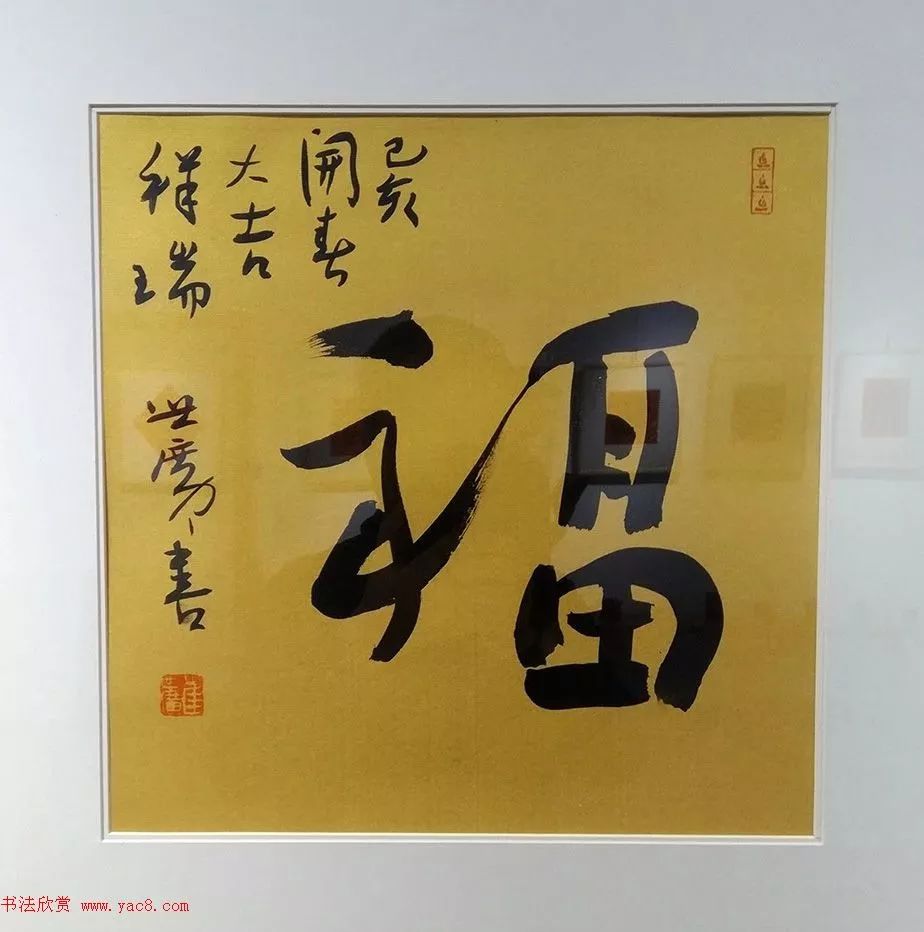 福
己亥
開春
大吉
祥瑞
世广书
书法欣赏 www.yac8.com